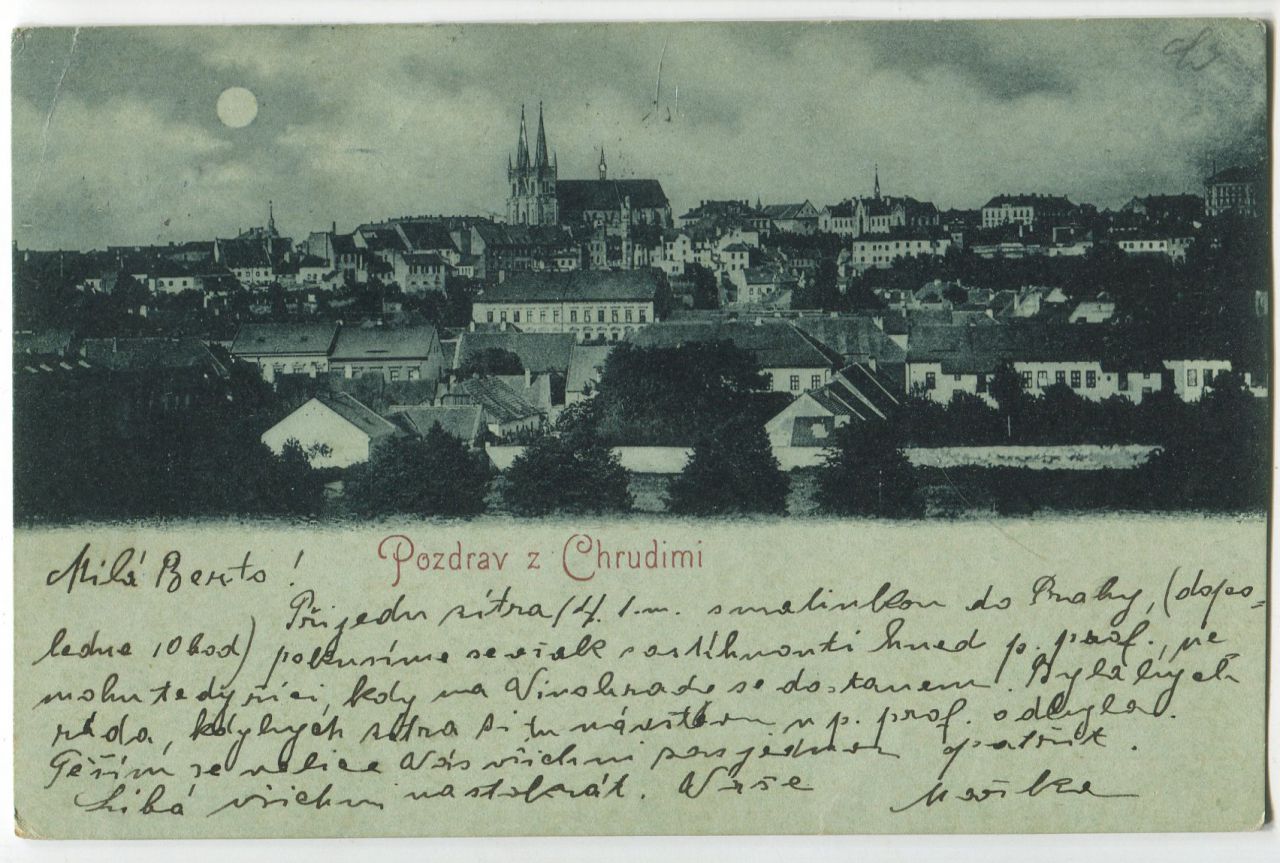 Pozdrav z Chrudimi
Milá Berto!
Přijedu zítra /4. t.m. s malinkou do Prahy, (dopo-
ledne 10 hod) pokusíme se však zastihnouti hned p. prof., ne
mohu tedy říci, kdy na Vinohrade se dostanem. Byla bych
ráda, kdybych zítra si tu návštěvu u p. prof. odbyla.
Těším se velice Vás všichni zas jednou opatřit.
Líbá všichni nastokrát. Vaše